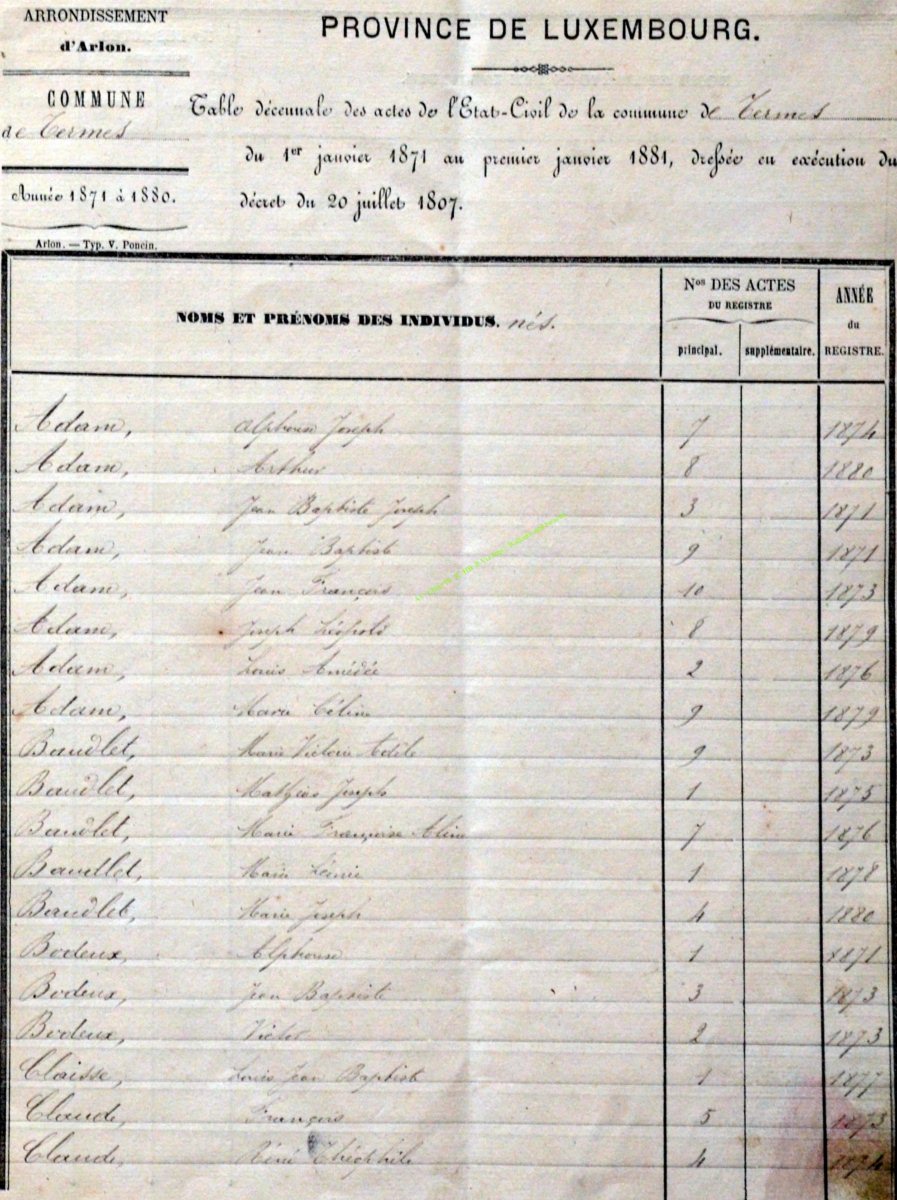 ARRONDISSEMENT
d'Arlon.
COMMUNE
de Termes
Année 1871 à 1880.
Arlon. — Typ. V. Poncin.
PROVINCE DE LUXEMBOURG.
Table décennale des actes de l'Etat-Civil de la commune de Termes
du 1er janvier 1871 au premier janvier 1881, dressée en exécution du
décret du 20 juillet 1807.
NOMS ET PRÉNOMS DES INDIVIDUS. nés.
Nos DES ACTES
DU REGISTRE
principal. supplémentaire.
ANNÉE
du
REGISTRE.
Adam, Alphonse Joseph 7 1874
Adam, Arthur 8 1880
Adam, Jean Baptiste Joseph 3 1871
Adam, Jean Baptiste 9 1871
Adam, Jean François 10 1873
Adam, Joseph Léopold 8 1879
Adam, Louis Amédée 2 1876
Adam, Marie Céline 9 1879
Baudlet, Marie Victoire Adèle 9 1873
Baudlet, Mathias Joseph 1 1875
Baudlet, Marie Françoise Aline 7 1876
Baudlet, Marie Léonie 1 1878
Baudlet, Marie Joseph 4 1880
Bodeux, Alphonse 1 1871
Bodeux, Jean Baptiste 3 1873
Bodeux, Victor 2 1873
Claisse, Louis Jean Baptiste 1 1877
Claude, François 5 1873
Claude, Réné Théophile 4 1874